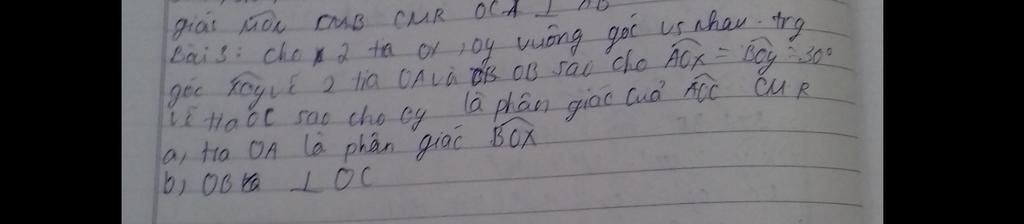 giác MON CMB CMR OCA ⊥ AB
Bài 3: cho 2 tia ox, oy vuông góc vs nhau. trg
góc xOy vẽ 2 tia OA và OB sao cho AOx = BOy = 30°
vẽ tia OC sao cho oy là phân giác cuả AOC CMR
a, tia OA là phân giác BOX
b, OB ⊥ OC